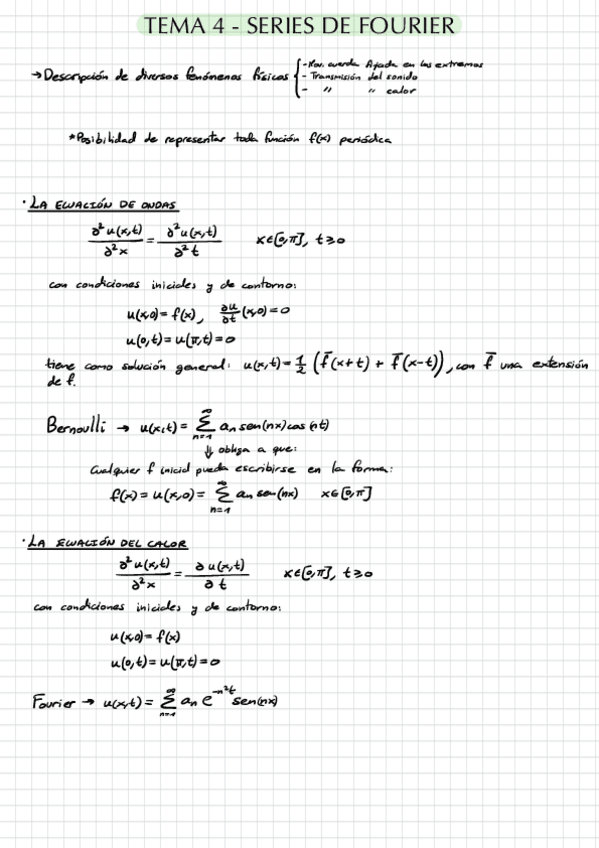 TEMA 4 - SERIES DE FOURIER
→ Descripción de diversos fenómenos físicos { - Mov. cuerda fijada en los extremos
- Transmisión del sonido
- " " calor
*Posibilidad de representar toda función f(x) periódica
· LA ECUACIÓN DE ONDAS
∂²u(x,t)/∂²x = ∂²u(x,t)/∂²t x∈[0,π], t≥0
con condiciones iniciales y de contorno:
u(x,0) = f(x), ∂u/∂t (x,0) = 0
u(0,t) = u(π,t) = 0
tiene como solución general: u(x,t) = 1/2 (f̄(x+t) + f̄(x-t)), con f̄ una extensión
de f.
Bernoulli → u(x,t) = ∑_{n=1}^{∞} aₙ sen(nx) cos(nt)
⇓ obliga a que:
Cualquier f inicial pueda escribirse en la forma:
f(x) = u(x,0) = ∑_{n=1}^{∞} aₙ sen(nx) x∈[0,π]
· LA ECUACIÓN DEL CALOR
∂²u(x,t)/∂²x = ∂u(x,t)/∂t x∈[0,π], t≥0
con condiciones iniciales y de contorno:
u(x,0) = f(x)
u(0,t) = u(π,t) = 0
Fourier → u(x,t) = ∑_{n=1}^{∞} aₙ e^{-n²t} sen(nx)